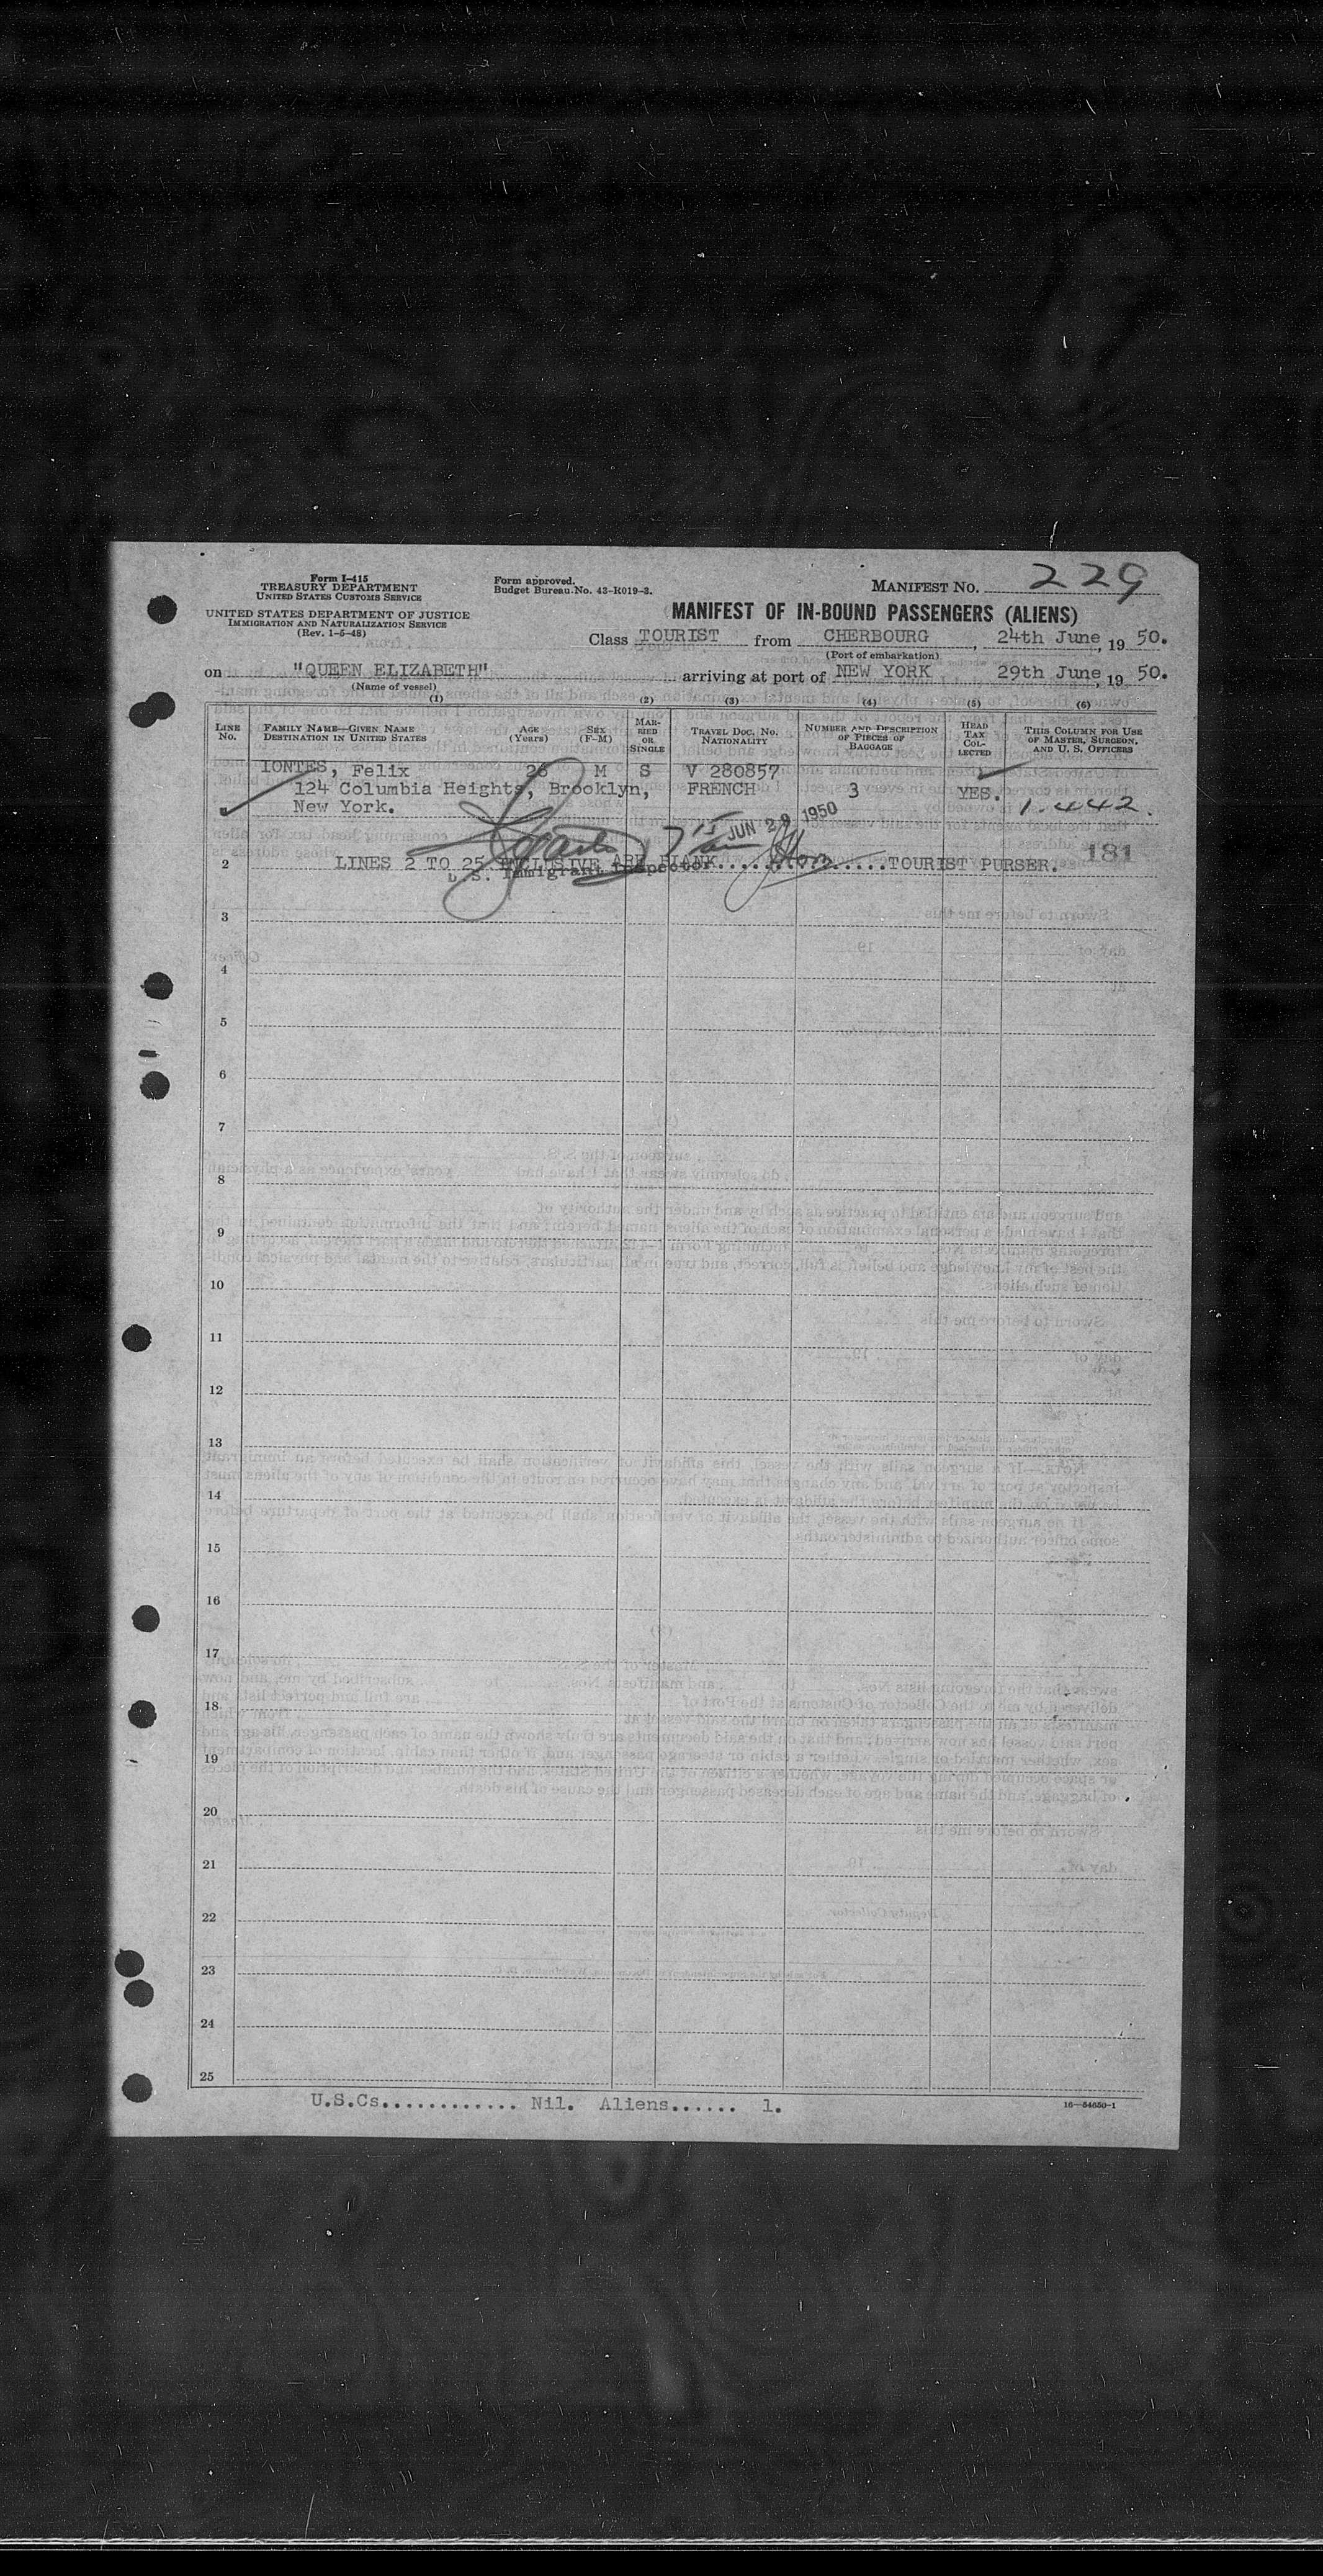 Form I-415
TREASURY DEPARTMENT
UNITED STATES CUSTOMS SERVICE
UNITED STATES DEPARTMENT OF JUSTICE
IMMIGRATION AND NATURALIZATION SERVICE
(Rev. 1-5-48)
Form approved.
Budget Bureau No. 43-R019-3.
MANIFEST NO. 229
MANIFEST OF IN-BOUND PASSENGERS (ALIENS)
Class TOURIST from CHERBOURG, 24th June, 19 50.
(Port of embarkation)
on "QUEEN ELIZABETH" arriving at port of NEW YORK 29th June, 19 50.
(Name of vessel)
(1) (2) (3) (4) (5) (6)
LINE NO.
FAMILY NAME—GIVEN NAME
DESTINATION IN UNITED STATES
AGE (Years)
SEX (F-M)
MARRIED OR SINGLE
TRAVEL DOC. NO.
NATIONALITY
NUMBER AND DESCRIPTION OF PIECES OF BAGGAGE
HEAD TAX COLLECTED
THIS COLUMN FOR USE OF MASTER, SURGEON, AND U. S. OFFICERS
IONTES, Felix 26 M S V 280857
124 Columbia Heights, Brooklyn, FRENCH 3 YES.
New York. 1.442.
JUN 29 1950
181
2 LINES 2 TO 25 INCLUSIVE ARE BLANK. TOURIST PURSER.
U. S. Immigrant Inspector
3
4
5
6
7
8
9
10
11
12
13
14
15
16
17
18
19
20
21
22
23
24
25
U.S.Cs............. Nil. Aliens...... 1.
16—54650-1